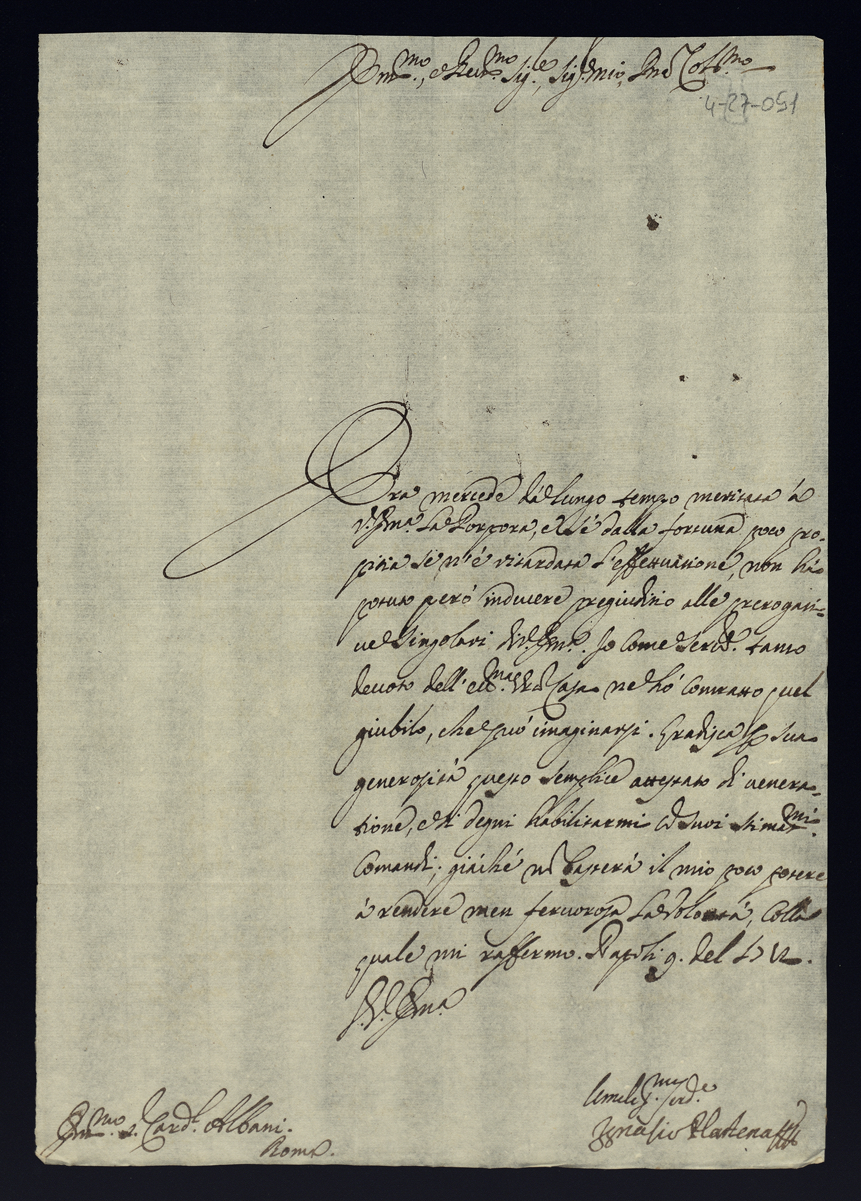 Em.mo, e Rev.mo Sig.re, Sig.r mio, Pñe Col.mo
4-27-051
Era mercede dà lungo tempo meritata à
V. Em.a La Porpora, e se dalla fortuna poco pro-
pizia se n'è ritardata l'effettuazione, non hà
potuto però inducere pregiudizio alle prerogati-
ve singolari di V. Em.a. Io come Serv.re tanto
devoto dell'ecc.ma Casa ne hò contratto quel
giubilo, che può imaginarsi. Gradisca p sua
generosità questo semplice attestato di venera-
tione, e si degni habilitarmi à suoi stimat.mi
Comandi; giàché nõ basterà il mio poco potere
à rendere men fervorosa La Volontà, Colla
quale mi raffermo. Napoli 9. del 1712.
D. V. Em.a
Umiliss.mo ser.re
Ignatio
Em.mo S. Card.l Albani.
Roma.